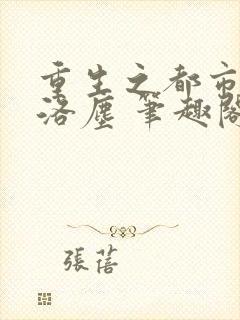 重生之都市
洛塵 筆趣閣
張蓓